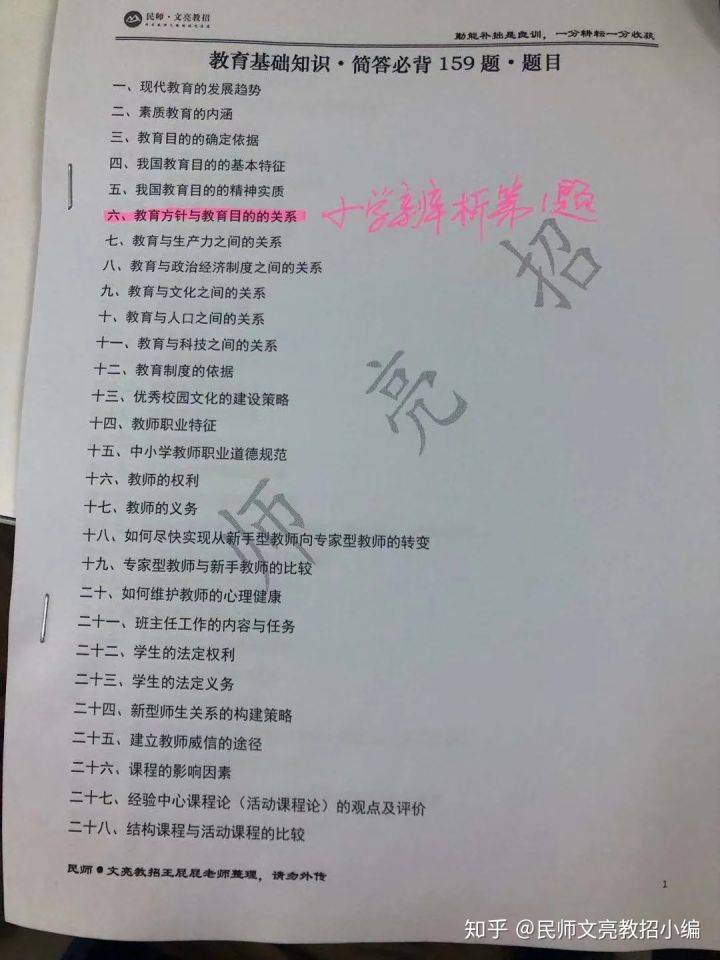 民师·文亮教招
勤能补拙是良训，一分耕耘一分收获
教育基础知识·简答必背 159 题·题目
一、现代教育的发展趋势
二、素质教育的内涵
三、教育目的的确定依据
四、我国教育目的的基本特征
五、我国教育目的的精神实质
六、教育方针与教育目的的关系 小学辨析第1题
七、教育与生产力之间的关系
八、教育与政治经济制度之间的关系
九、教育与文化之间的关系
十、教育与人口之间的关系
十一、教育与科技之间的关系
十二、教育制度的依据
十三、优秀校园文化的建设策略
十四、教师职业特征
十五、中小学教师职业道德规范
十六、教师的权利
十七、教师的义务
十八、如何尽快实现从新手型教师向专家型教师的转变
十九、专家型教师与新手教师的比较
二十、如何维护教师的心理健康
二十一、班主任工作的内容与任务
二十二、学生的法定权利
二十三、学生的法定义务
二十四、新型师生关系的构建策略
二十五、建立教师威信的途径
二十六、课程的影响因素
二十七、经验中心课程论（活动课程论）的观点及评价
二十八、结构课程与活动课程的比较
师亮招
民师●文亮教招王屁屁老师整理，请勿外传
1
知乎 @民师文亮教招小编